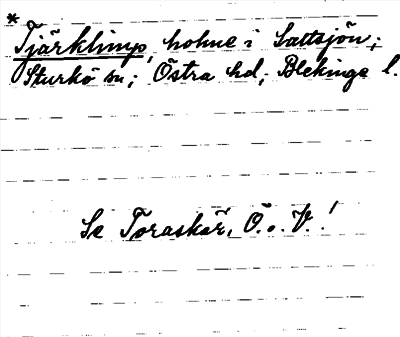 *
Tjärklimp, holme i Saltsjön;
Sturkö sn; Östra hd; Blekinge l.
Se Toraskär, Ö. o. V.!